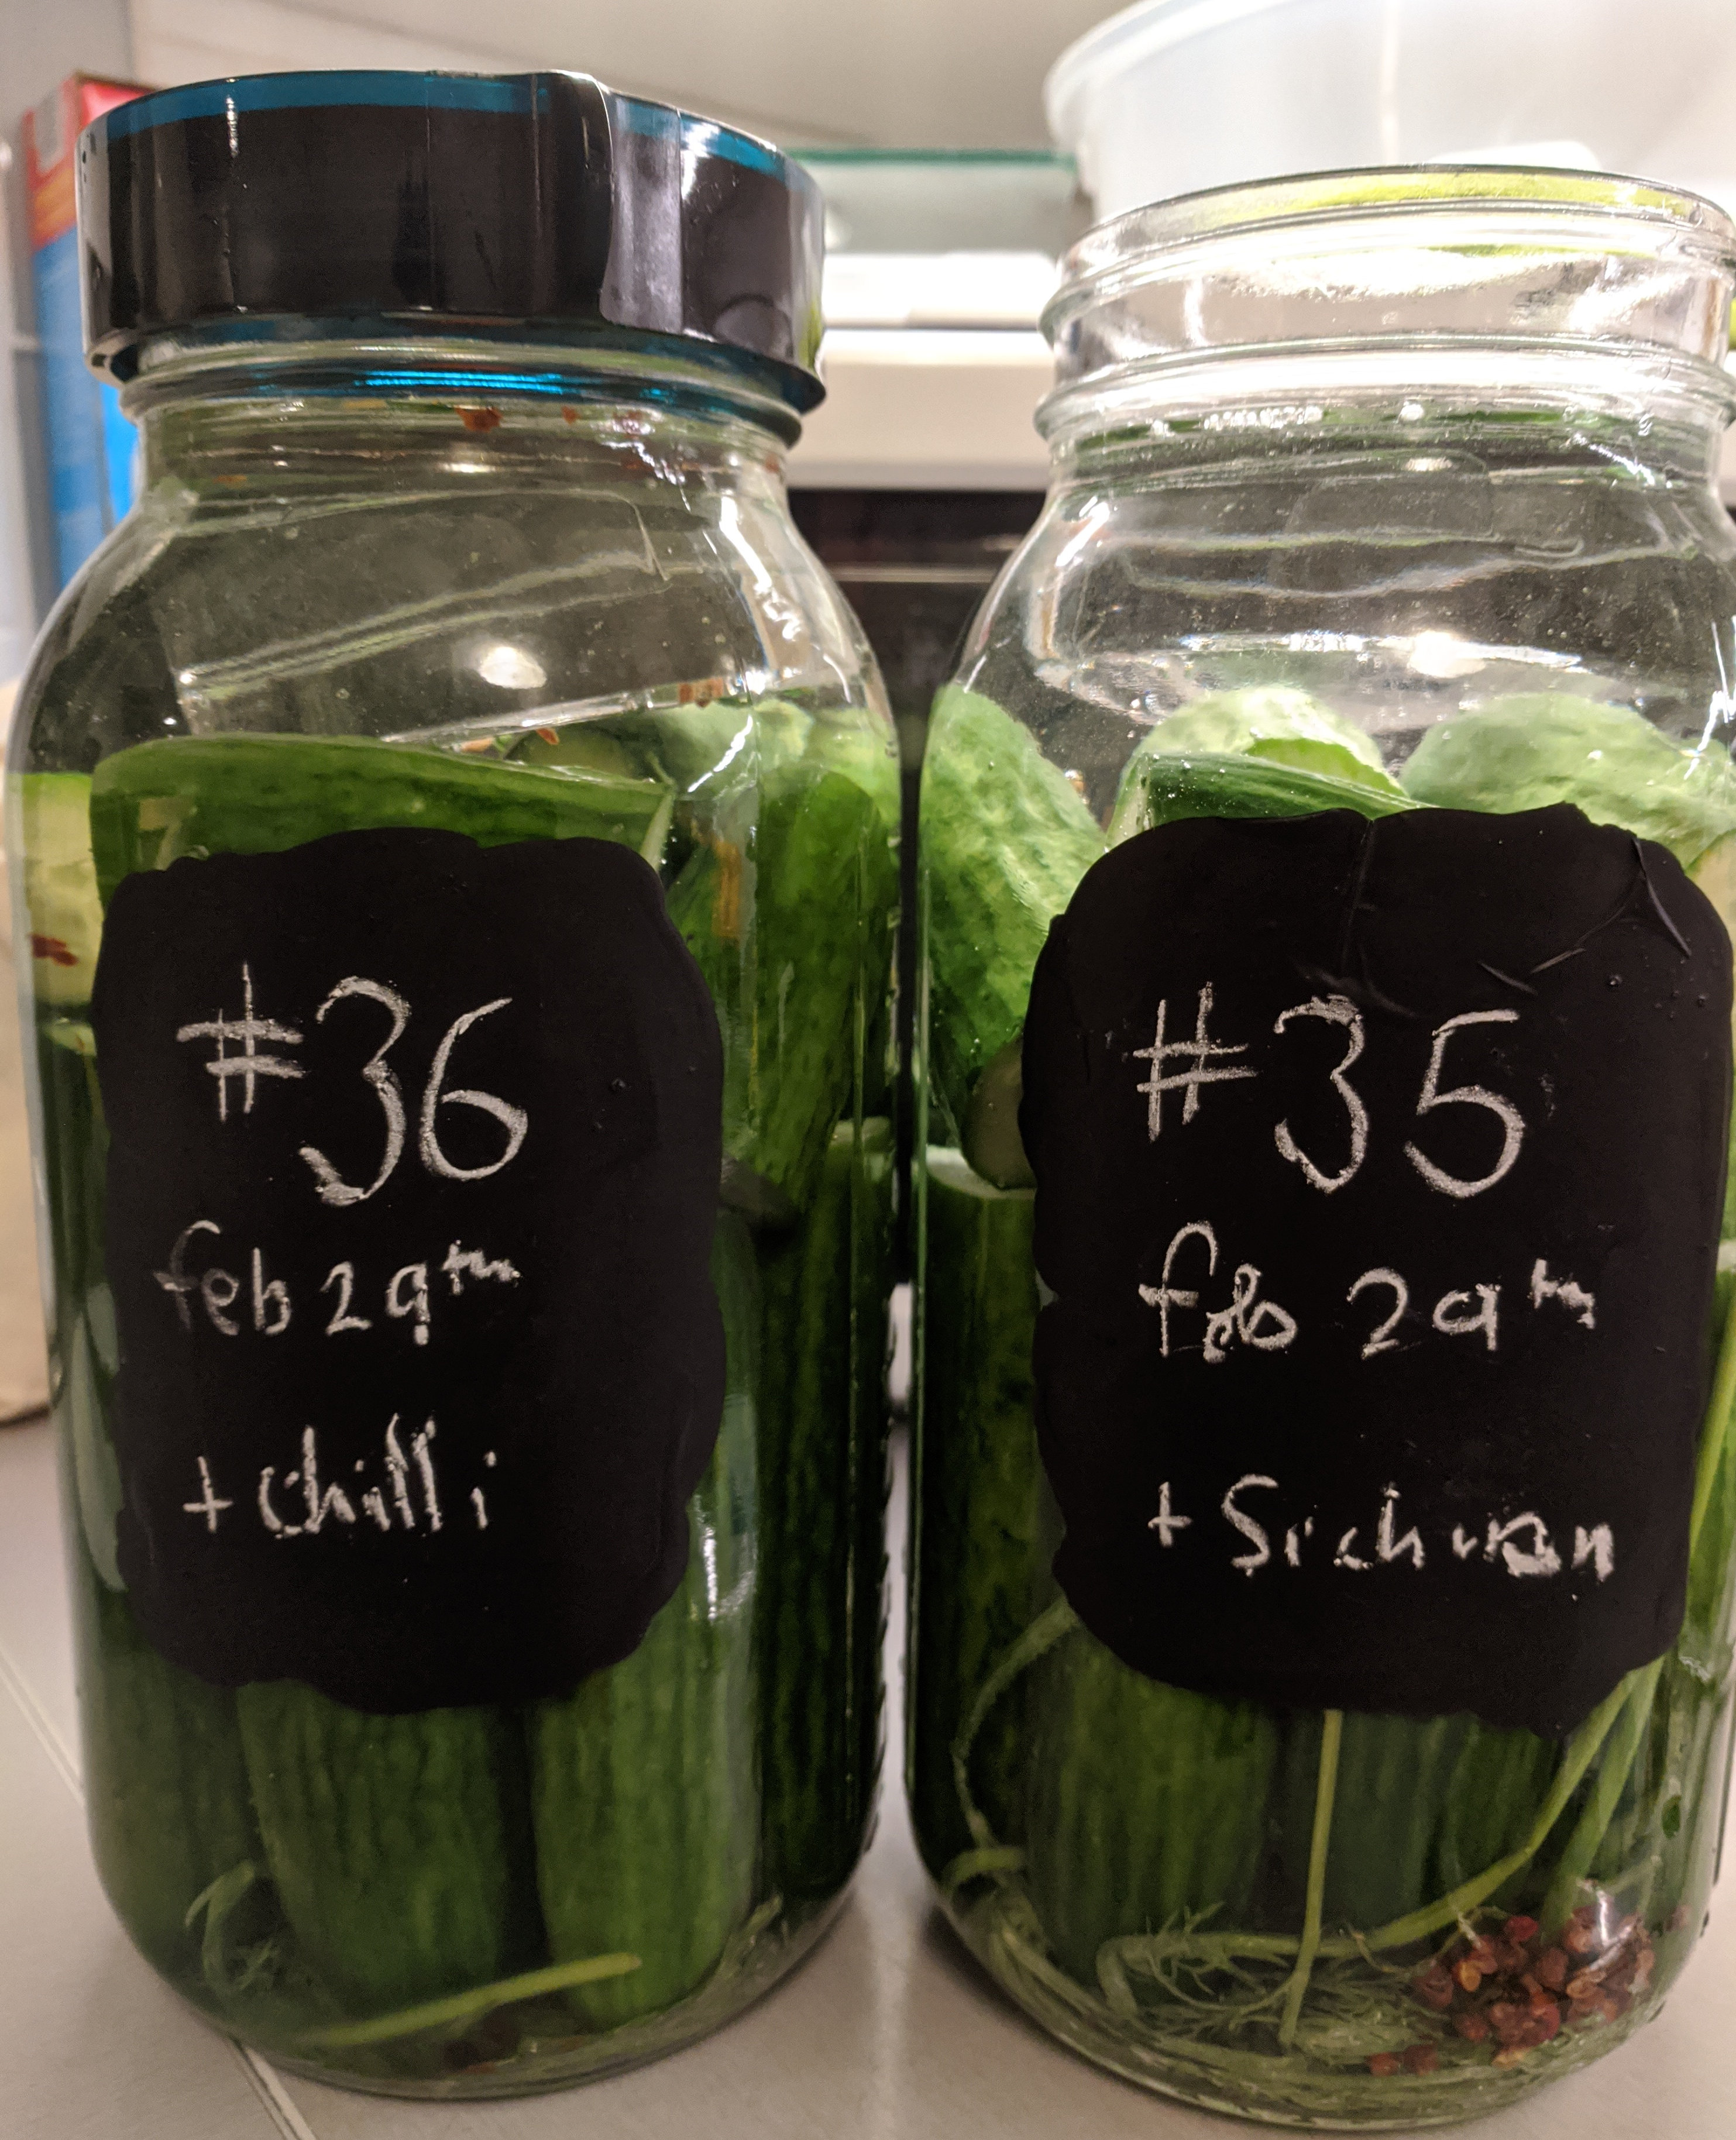 #36
feb 29th
+ chilli
#35
feb 29th
+ Sichuan